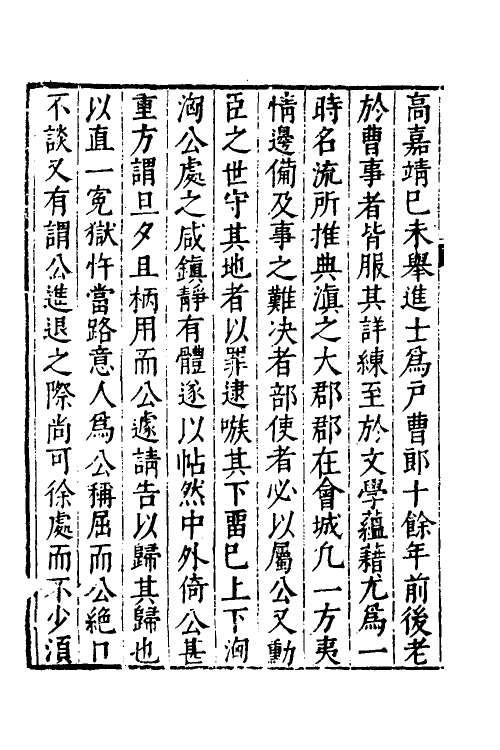 高嘉靖已未舉進士爲戸曹郎十餘年前後老
於曹事者皆服其詳練至於文學藴藉尤爲一
時名流所推典滇之大郡郡在會城凢一方夷
情邊備及事之難决者部使者必以屬公又動
臣之世守其地者以罪逮嗾其下畱已上下洶
洶公處之咸鎮靜有體遂以帖然中外倚公甚
重方謂旦夕且柄用而公遽請告以歸其歸也
以直一寃獄忤當路意人爲公稱屈而公絶口
不談又有謂公進退之際尚可徐處而不少湏